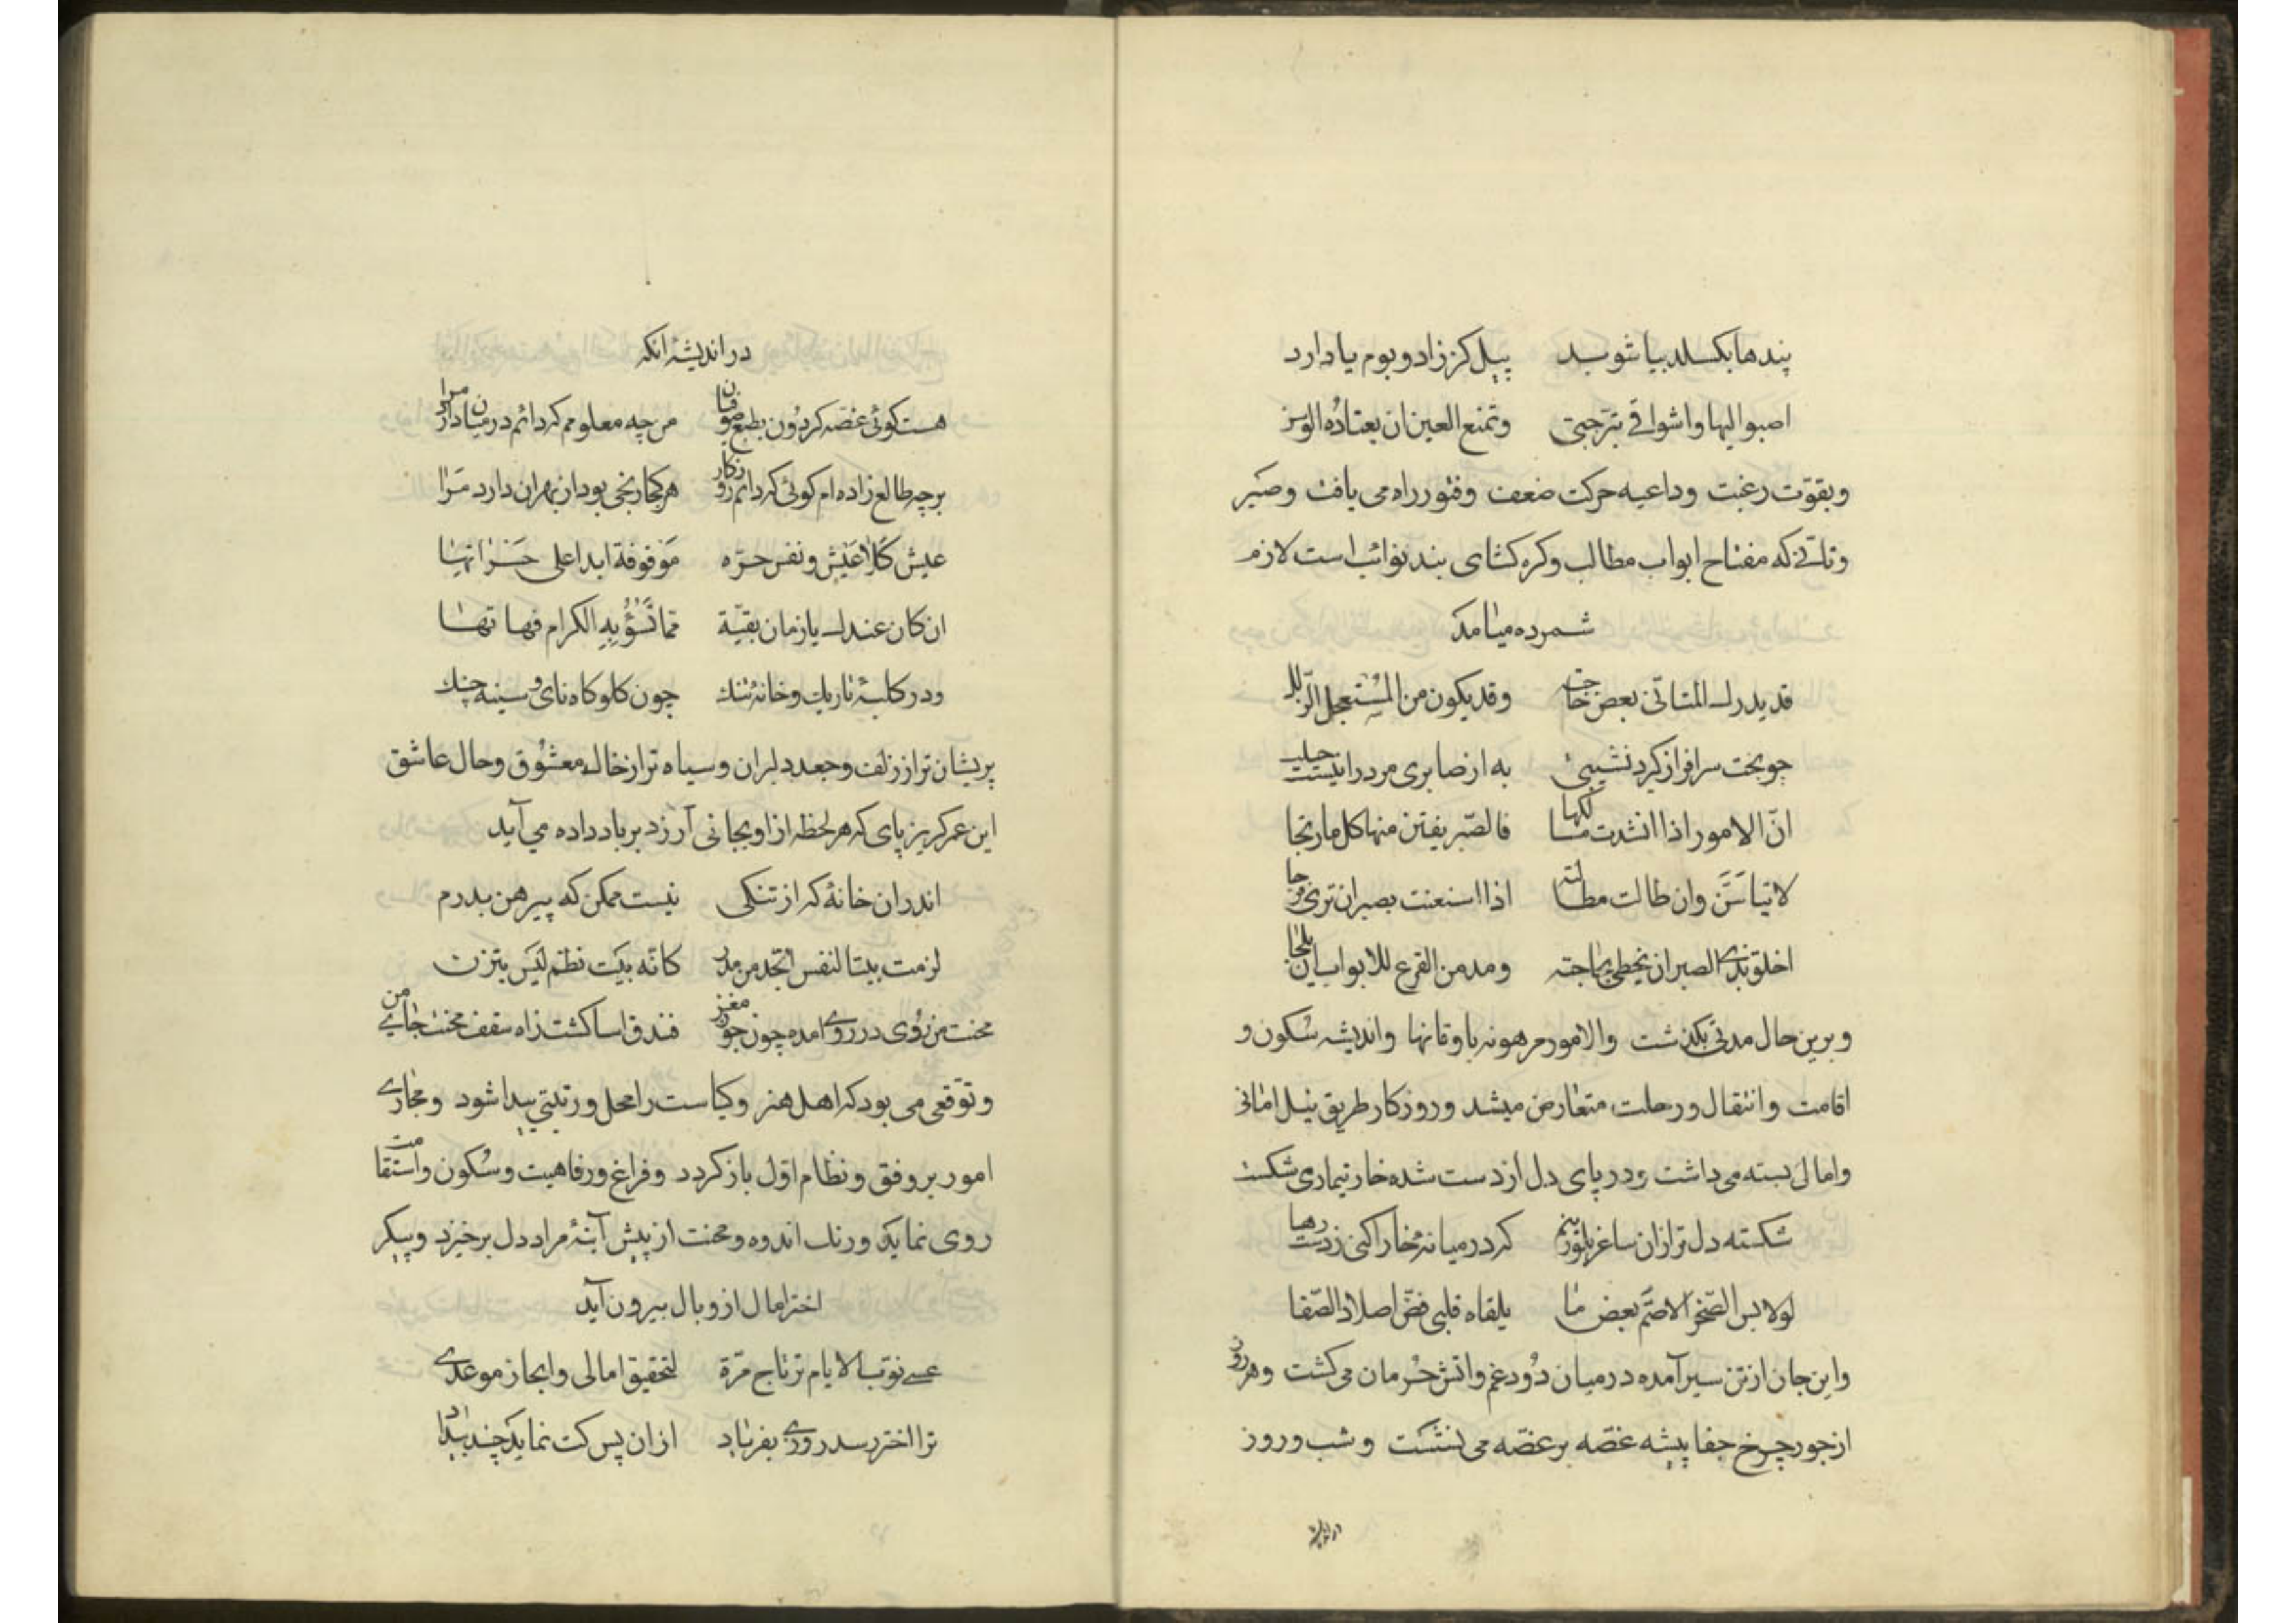 بندها بکسلد بیاشوبد پیل کز زاد و بوم یاد دارد
اصبوا الیها واشواقی تبرحنی وتمنع العین ان یعتاده الوسن
وبقوت رغبت وداعیه حرکت ضعف وفتور راه می یافت وصبر
وتانی که مفتاح ابواب مطالب وکره کشای بند نوائب است لازم
شمرده میامد
قد یدرك المتانی بعض حاجته وقد یکون من المستعجل الزلل
چو بخت سرافراز کرد نشیبی به از صابری مرد را نیست حیلت
انّ الامور اذا انسدت مسالکها فالصبر یفتق منها کل ما ارتجا
لا تیاسنّ وان طالت مطالبة اذا استعنت بصبر ان تری فرجا
اخلق بذی الصبر ان یحظی بحاجته ومدمن القرع للابواب ان یلجا
وبرین حال مدتی بکذشت والامور مرهونه باوقاتها واندیشه سکون و
اقامت وانتقال ورحلت متعارض میشد وروزکار طریق نیل امانی
وامالی بسته می داشت ودر پای دل از دست شده خار تیماری شکست
شکسته دل تر ازان ساغر بلورینم که در میانه خارا کنی ز دست رها
لولابس الصخر الاصمّ بعض ما یلقاه قلبی فضّ اصلاد الصفا
واین جان از تن سیر آمده در میان دود غم واتش حرمان می کشت وهر روز
از جور چرخ جفا پیشه غصّه بر غصّه می نشست وشب وروز
در اندیشه
در اندیشه انکه
هست کوئی غصه کردون بطبع صوفیان من چه معلومم که دائم در میان دارد مرا
بر چه طالع زاده ام کوئی که دائم روزکار هر کجا رنجی بود از بهر ان دارد مرا
عیش کلا عیش ونفس حرّه موقوفة ابدا علی حسراتها
ان کان عندك یا زمان بقیّة مما تسؤ به الکرام فهاتها
ودر کلبهٔ تاریك وخانهٔ تنك چون کلوکاه نای وسینه چنك
پریشان تر از زلف وجعد دلبران وسیاه تر از خال معشوق وحال عاشق
این عمر کریزپای که هر لحظه از او بجانی آرزد بر باد داده می آید
اندران خانهٔ که از تنکی نیست ممکن که پیرهن بدرم
لزمت بیتا لنفس اتخذ من مدر کانّه بیت نظم لیس یتزن
محنت من روی در روی امده چون جوز مغز فندق اسا کشت زاه سقف محنت جای من
وتوقعی می بود که اهل هنر وکیاست را محل ورتبتی پیدا شود ومجاری
امور بر وفق ونظام اوّل باز کردد وفراغ ورفاهیت وسکون واستقامت
روی نماید ورنك اندوه ومحنت از پیش آینهٔ مراد دل برخیزد وپیکر
اختر امال از وبال بیرون آید
عسی نوب الایام ترتاح مرّة لتحقیق امالی وانجاز موعدی
ترا اختر رسد روزی بفریاد ازان پس کت نماید چند بیداد